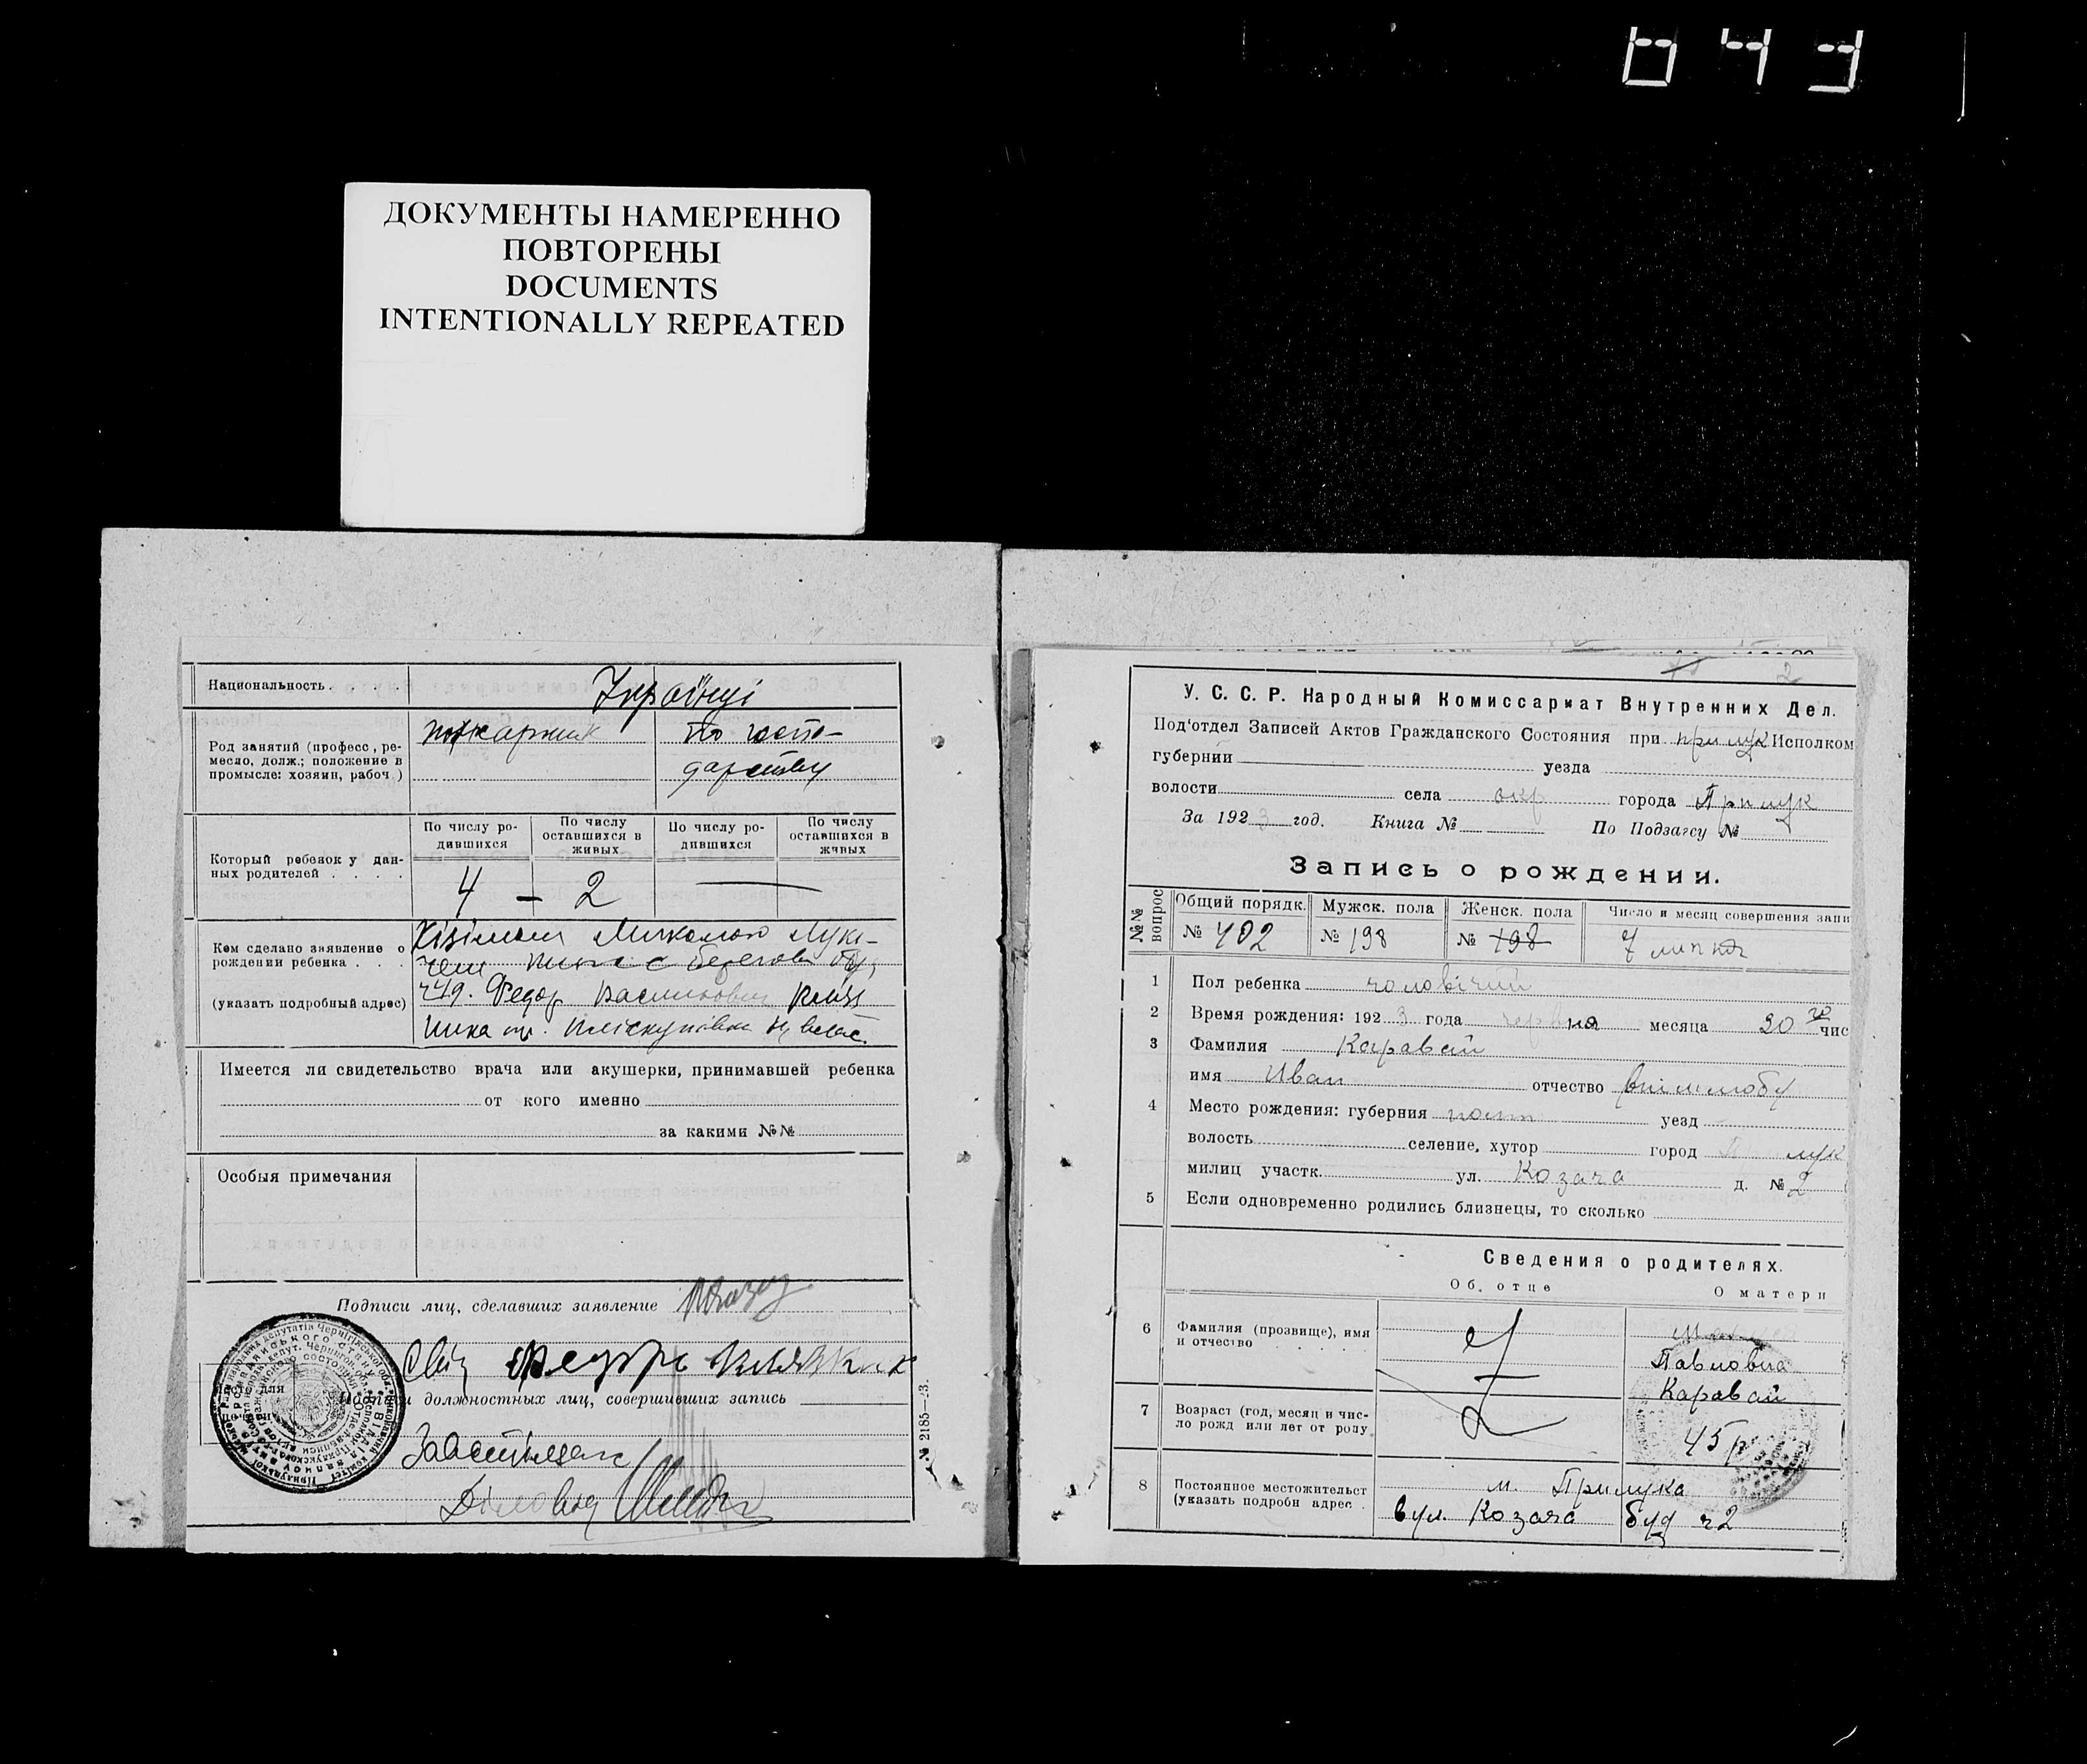 043
ДОКУМЕНТЫ НАМЕРЕННО
ПОВТОРЕНЫ
DOCUMENTS
INTENTIONALLY REPEATED
Национальность . . . . Українці
Род занятий (професс, ре-
месло, долж.; положение в
промысле: хозяин, рабоч.)
пожарник
по госпо-
дарству
Который ребенок у дан-
ных родителей . . . .
По числу ро-
дившихся
По числу
оставшихся в
живых
По числу ро-
дившихся
По числу
оставшихся в
живых
4 — 2 —
Кем сделано заявление о
рождении ребенка . . .
(указать подробный адрес)
Миколою Лукі-
чем
Федор
Имеется ли свидетельство врача или акушерки, принимавшей ребенка
от кого именно
за какими №№
Особыя примечания
Подписи лиц, сделавших заявление
Подписи должностных лиц, совершивших запись
№ 2185—23.
2
У. С. С. Р. Народный Комиссариат Внутренних Дел.
Под'отдел Записей Актов Гражданского Состояния при прилук Исполком
губернии уезда
волости села окр города Прилук
За 1923 год. Книга № По Подзагсу №
Запись о рождении.
№№ вопрос
Общий порядк. Мужск. пола Женск. пола Число и месяц совершения запи
№ 402 № 198 № 198 7 липня
1 Пол ребенка чоловічий
2 Время рождения: 1923 года червня месяца 20 го чис
3 Фамилия Каравай
имя Иван отчество
4 Место рождения: губерния полт уезд
волость селение, хутор город П лук
милиц участк. ул. Козача д. № 2
5 Если одновременно родились близнецы, то сколько
Сведения о родителях.
Об. отце О матери
6 Фамилия (прозвище), имя
и отчество
Павловна
Каравай
7 Возраст (год, месяц и чис-
ло рожд или лет от роду
45 р
8 Постоянное местожительст
(указать подробн адрес .
м. Прилука
вул. Козача буд ч 2